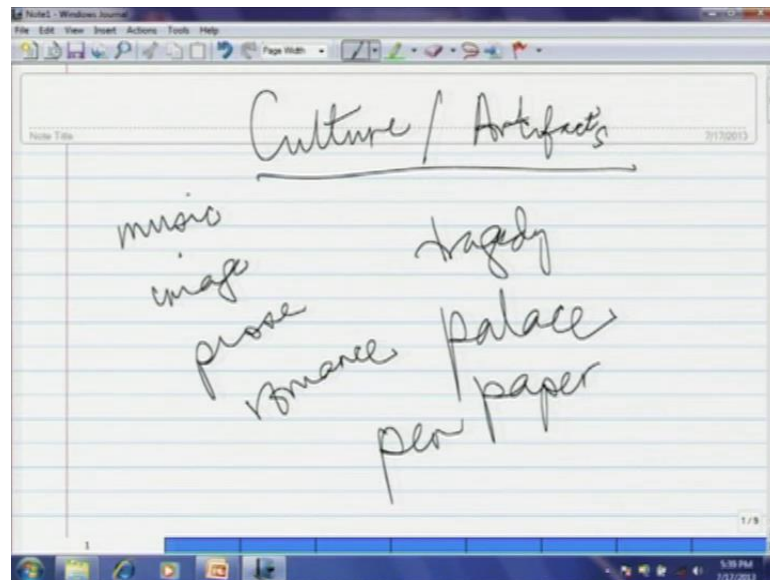 Note1 - Windows Journal
File Edit View Insert Actions Tools Help
Page Width
Note Title
Culture / Artifacts
7/17/2013
music
image
prose
romance
tragedy
palace
pen paper
1 / 9
1
5:39 PM
7/17/2013